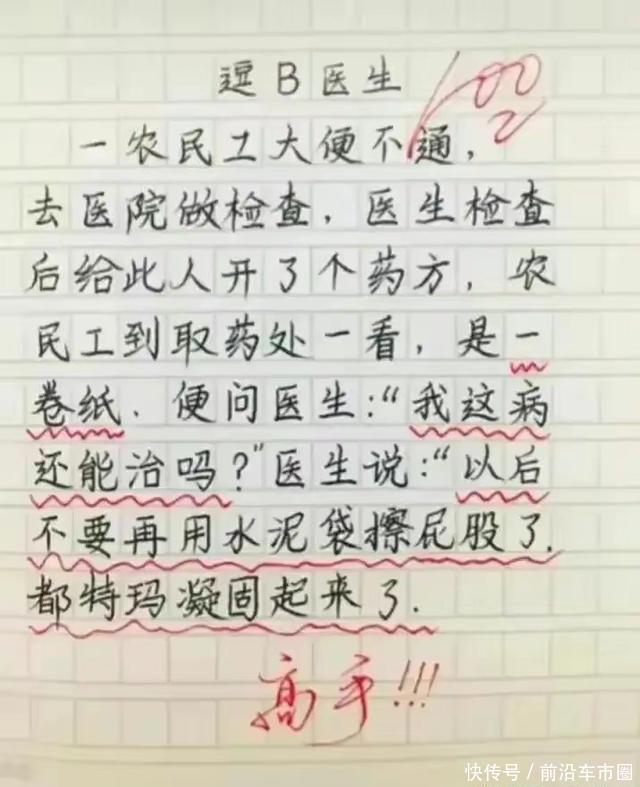 逗B医生
100
一农民工大便不通,
去医院做检查,医生检查
后给此人开了个药方,农
民工到取药处一看,是一
卷纸.便问医生:“我这病
还能治吗?”医生说:“以后
不要再用水泥袋擦屁股了.
都特玛凝固起来了.
高手!!!
快传号/前沿车市圈